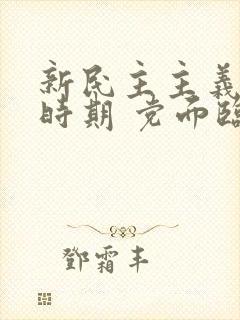 新民主主義
時期 党面臨
鄧霜丰